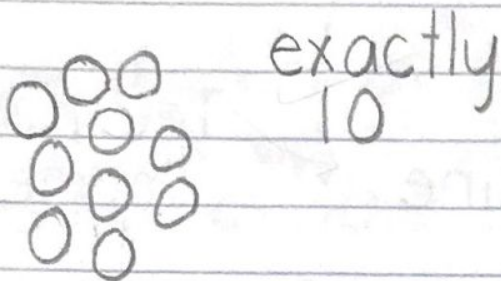 exactly
10